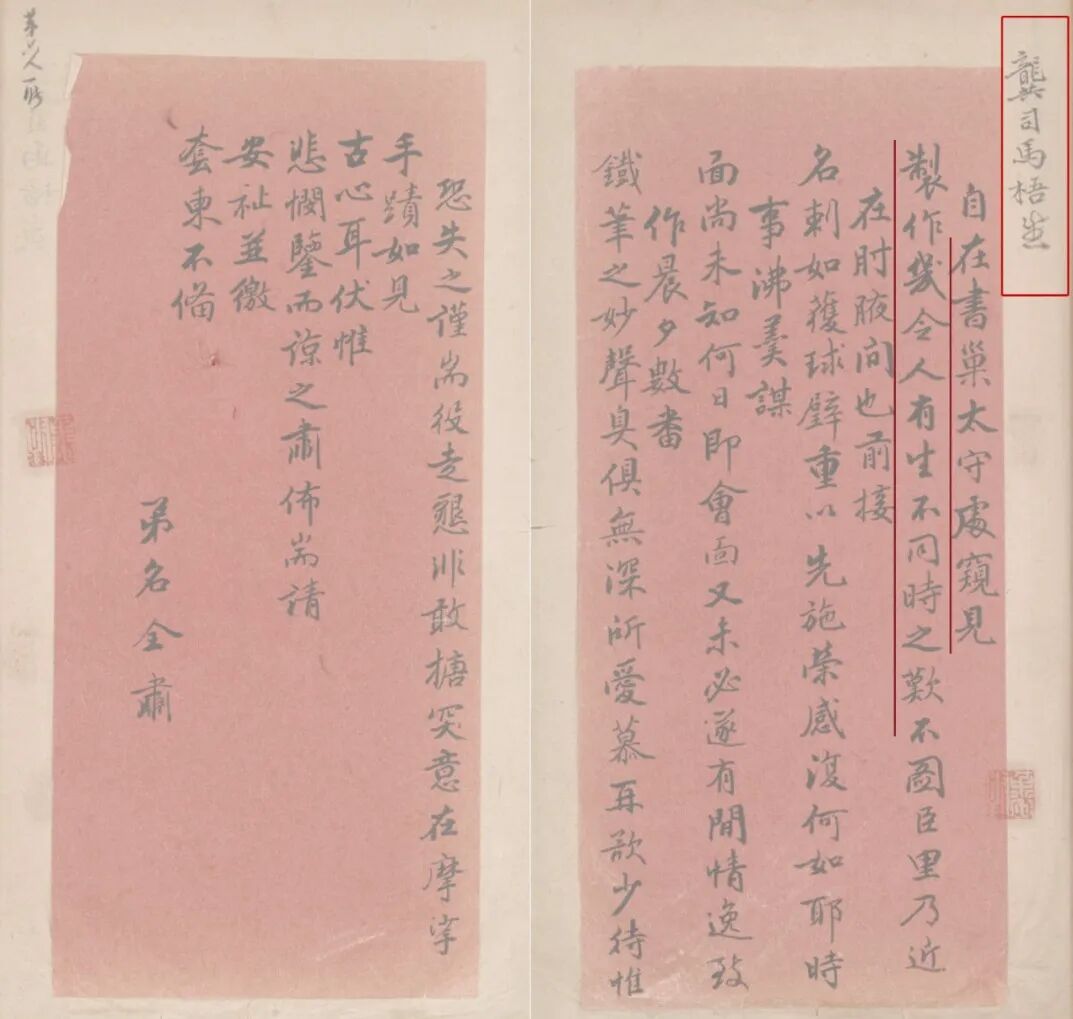 龔司馬梧生
自在書巢太守處窺見
製作幾令人有生不同時之歎不圖臣里乃近
在肘腋間也前接
名刺如獲球璧重以先施榮感復何如耶時
事沸羹謀
面尚未知何日即會面又未必遂有閒情逸致
作晨夕數番
鐵筆之妙聲臭俱無深所愛慕再欲少待惟
恐失之謹耑役走懇非敢搪突意在摩挲
手蹟如見
古心耳伏惟
悲憫鑒而諒之肅佈耑請
安祉並繳
套東不備
弟名全肅